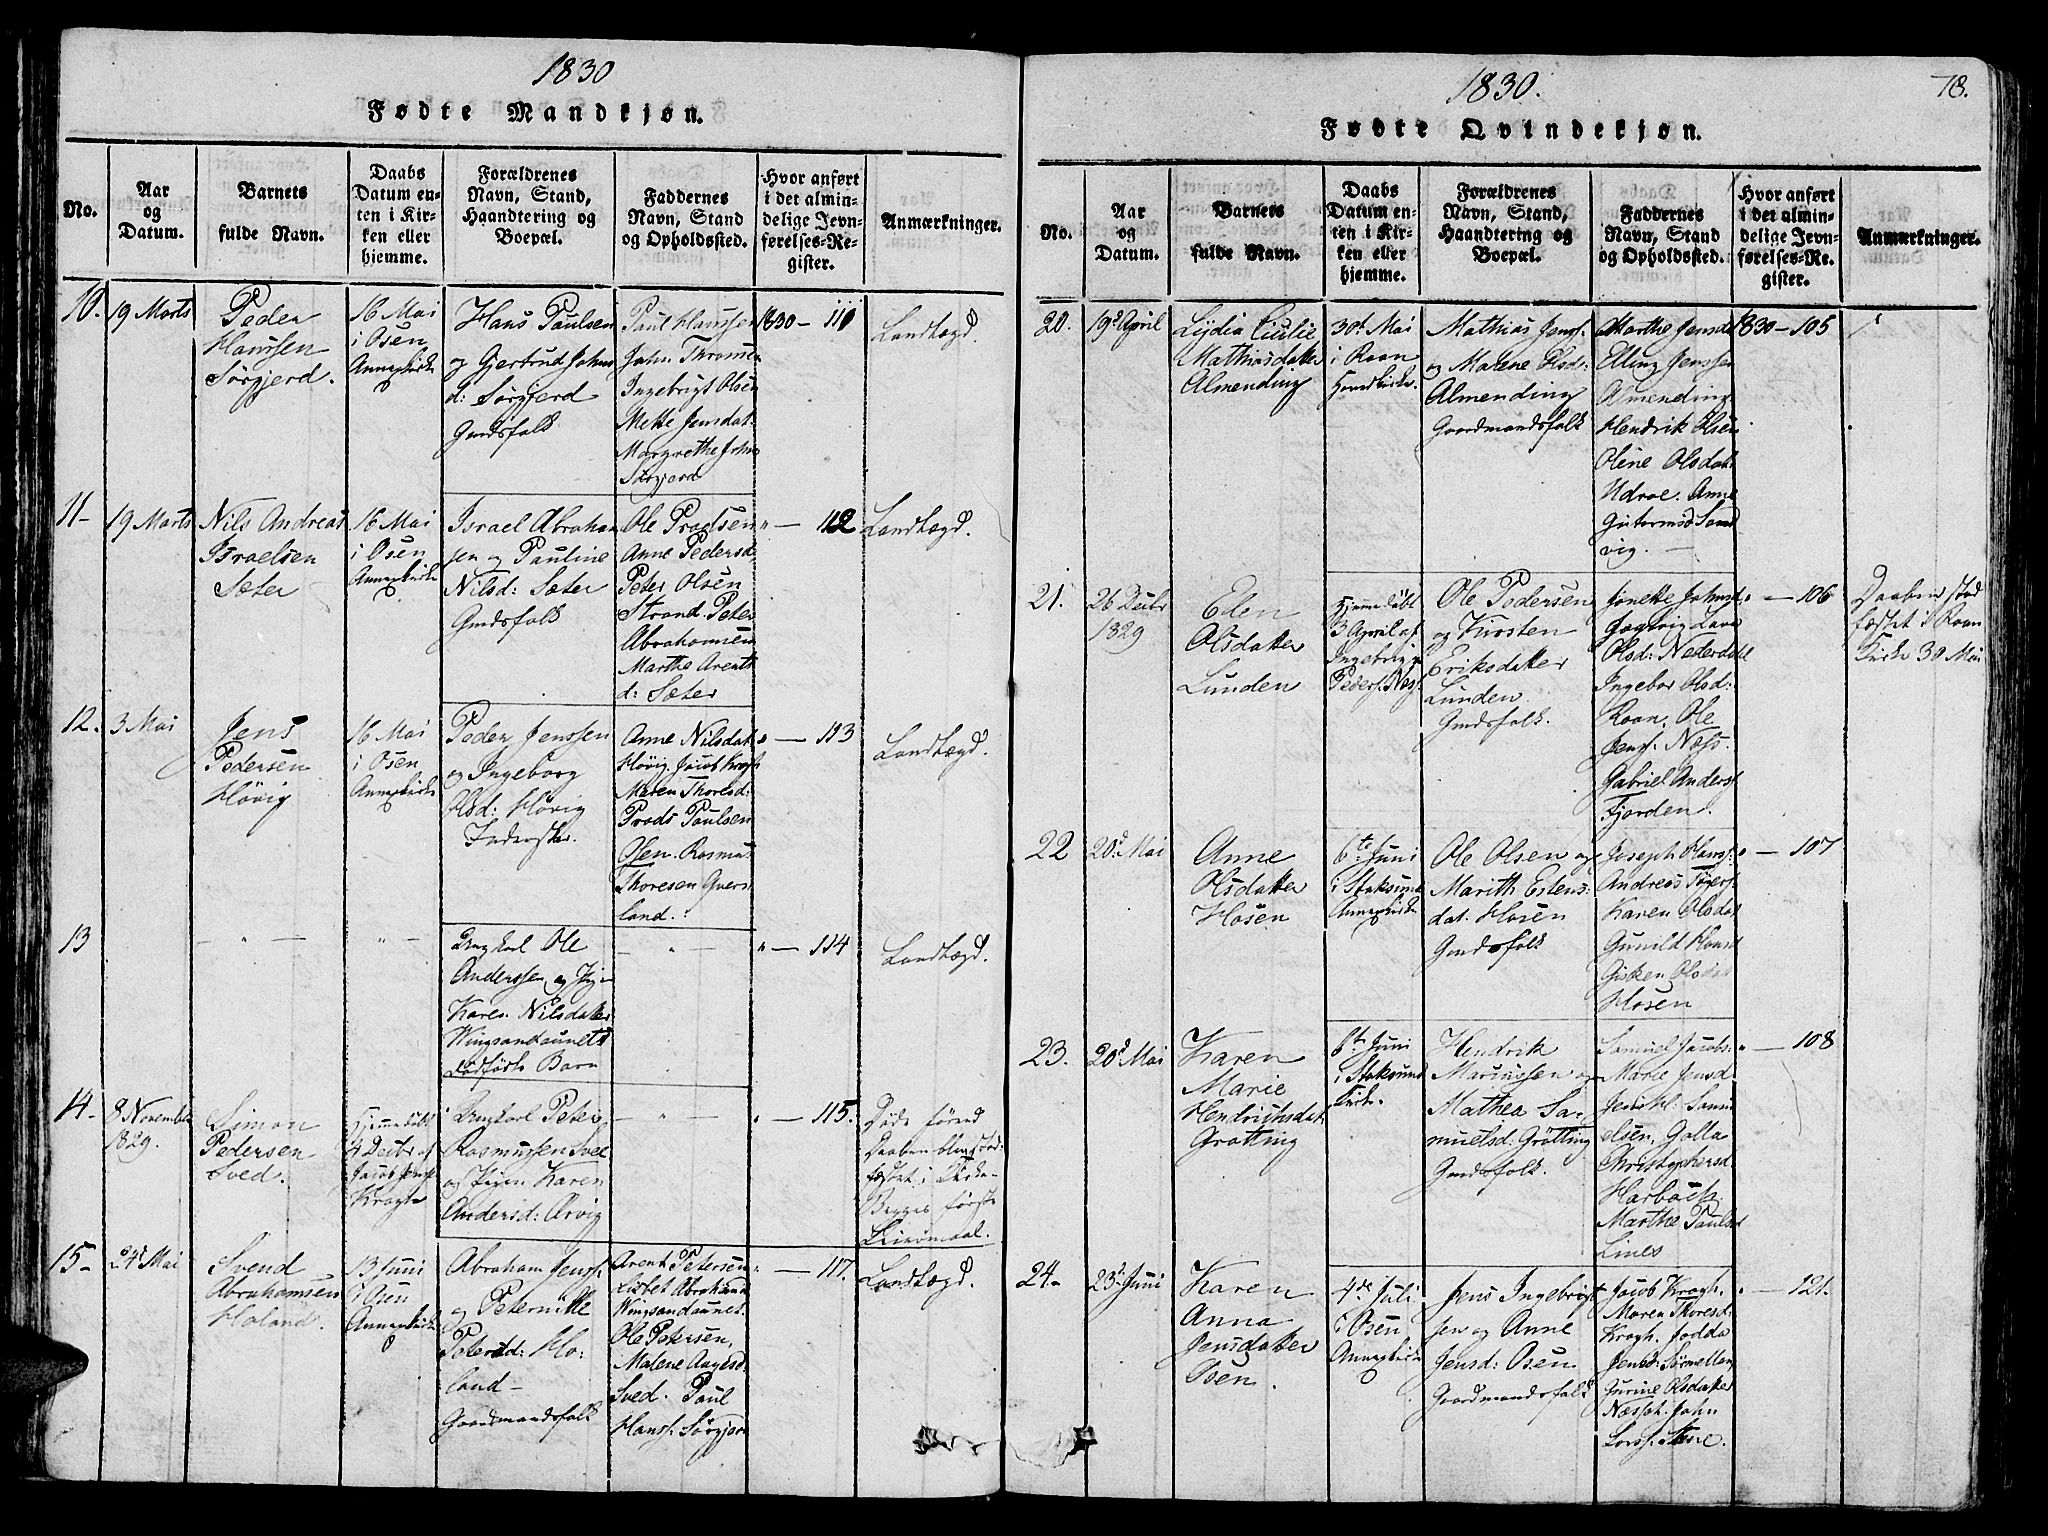 1830
Fødte Mandkjøn.
No.
Aar
og
Datum.
Barnets
fulde Navn.
Daabs
Datum en-
ten i Kir-
ken eller
hjemme.
Forældrenes
Navn, Stand,
Haandtering og
Boepæl.
Faddernes
Navn, Stand
og Opholdssted.
Hvor anført
i det almin-
delige Jevn-
førelses-Re-
gister.
Anmærkninger.
10.
19 Marts
Peder
Hanssen
Sørgjerd.
16 Mai
i Osen
Annexkirke
Hans Paulsen
og Gjertrud Johns
d: Sørgjerd
Gmdsfolk
Paul Hanssen
John Thomsen
Ingebrigt Olsen
Mette Jensdat.
Margrethe Johns
Sørgjerd
830 - 110
Landtægd.
11-
19 Marts
Nils Andreas
Israelsen
Sæter
16 Mai
i Osen
Annexkirke
Israel Abraham
sen og Pauline
Nilsd: Sæter
Gmdsfolk
Ole Troelsen
Anne Pedersd
Peter Olsen
Strand Peter
Abrahamsen
Marthe Arents
d: Sæter
" - 112
Landtægd.
12.
3 Mai
Jens
Pedersen
Høvig
16 Mai
i Osen
Annexkirke
Peder Jenssen
og Ingeborg
Olsd: Høvig
Inderster.
Anne Nilsdat
Høvig. Jacob Krogh
Maren Thoresd:
Trods Paulsen
Osen. Rasmus
Thoresen Qvers
land.
" - 113
Landtægd.
13
- " -
" -
Ungkarl Ole
Anderssen og Pige
Karen Nilsdatter
Wingsandaunets
dødfødte Barn
- " -
" - 114
Landtægd.
14-
8 November
1829.
Simon
Pedersen
Sved.
Hjemmedøbt
4 Decbr af
Jacob Jensf
Krogh
Ungkarl Peter
Rasmussen Sved
og Pigen Karen
Andersd: Arvig
- " -
" - 115.
Døde førend
Daaben blev stad-
fæstet i Kirken
Begges første
Leiermaal.
15-
24de Mai
Svend
Abrahamsen
Holand.
13 Juni
i Osen
Annexkirke
Abraham Jensf.
og Peternille
Petersd: Ho-
land -
Gaardmandsfolk
Arent Petersen
Lisbet Abrahams
Wingsandaunet.
Ole Petersen,
Malene Aagesd
Sved. Paul
Hansf. Sørgjerd
" - 117.
Landtægd.
1830.
78.
Fødte Qvindekjøn.
No.
Aar
og
Datum.
Barnets
fulde Navn.
Daabs
Datum en-
ten i Kir-
ken eller
hjemme.
Forældrenes
Navn, Stand,
Haandtering og
Boepæl.
Faddernes
Navn, Stand
og Opholdssted.
Hvor anført
i det almin-
delige Jevn-
førelses-Re-
gister.
Anmærkninger.
20.
19de April
Lydia Ciulie
Mathiasdatter
Almending
30te Mai
i Roan
Hovedkirke.
Mathias Jensf.
og Malene Olsd:
Almending
Gaardmandsfolk
Marthe Jensd
Elling Jenssen
Almending
Hendrik Olsen
Oline Olsdat.
Udroe. Anne
Gutormsd Sand
vig. -
830 - 105
21.
26 Decbr
1829
Elen
Olsdatter
Lunden
Hjemmedøbt
3 April af
Ingebrigt
Peders. Næss.
Ole Pedersen
og Kirsten
Eriksdatter
Lunden
Gmdsfolk.
Jonette Johnsd.
Jægtvig Lava
Olsd: Nederdahl
Ingebor Olsd:
Roan. Ole
Jensf. Næss.
Gabriel Andersf
Fjorden.
" - 106
Daaben stad
fæstet i Roan
Kirke 30 Mai
22
20de Mai
Anne
Olsdatter
Hosen
6te Juni
i Stoksund
Annexkirke
Ole Olsen og
Marith Estens-
dat. Hosen
Gmdsfolk
Joseph Hansf.
Andreas Torers.
Karen Olsdat
Gunild Hansd
Gisken Olsdat
Hosen
" - 107
23.
20de Mai
Karen
Marie
Hendrichsdat.
Grøtting
6te Juni
i Stoksund
Kirke.
Hendrik
Mariussen og
Mathea Sa-
muelsd: Grøtting
Gmdsfolk.
Samuel Jacobs:
Marie Jensd
Samu
elsen, Golla
Christophersd.
Harbach.
Marthe Paulsd
Lines
" - 108
24-
23de Juni
Karen
Anna
Jensdatter
Osen.
4de Juli
i Osen
Annexkirke
Jens Ingebrigt
sen og Anne
Jensd: Osen
Gaardmandsfolk
Jacob Krogh.
Maren Thoresd:
Krogh. Jodda
Jensd: Sørmelland
Jurine Olsdatter
Næsset. John
Larsf. Stene.
" - 121.